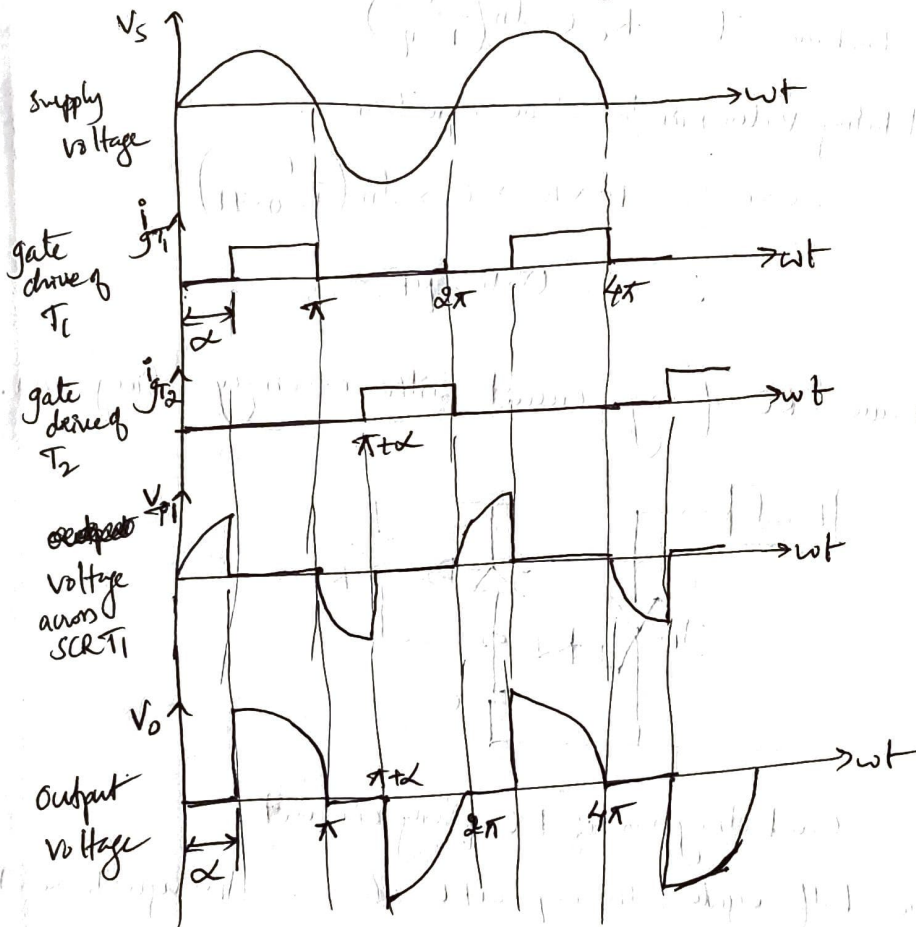 Vs
supply
voltage
ωt
i gT1
gate
drive of
T1
α
π
2π
4π
ωt
i gT2
gate
drive of
T2
π+α
ωt
VT1
voltage
across
SCR T1
ωt
Vo
output
voltage
α
π
π+α
2π
4π
ωt